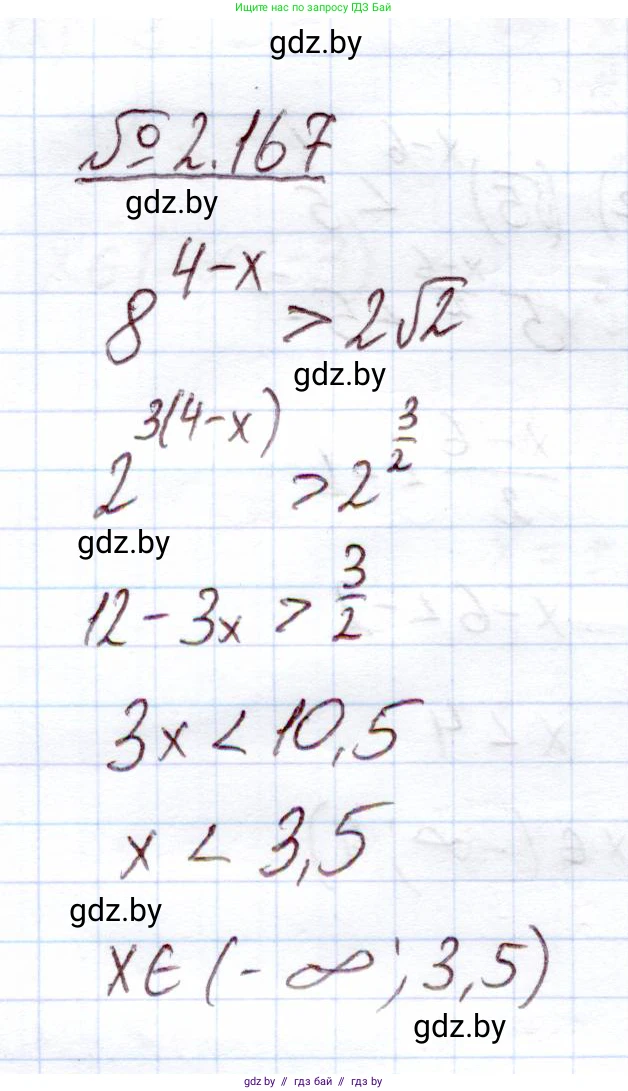 Ищите нас по запросу ГДЗ Бай
gdz.by
№ 2.167
gdz.by
8^{4-x} > 2√2
gdz.by
2^{3(4-x)} > 2^{3/2}
gdz.by
12 - 3x > 3/2
3x < 10,5
x < 3,5
gdz.by
x ∈ (-∞; 3,5)
gdz.by
gdz by // гдз бай // gdz by